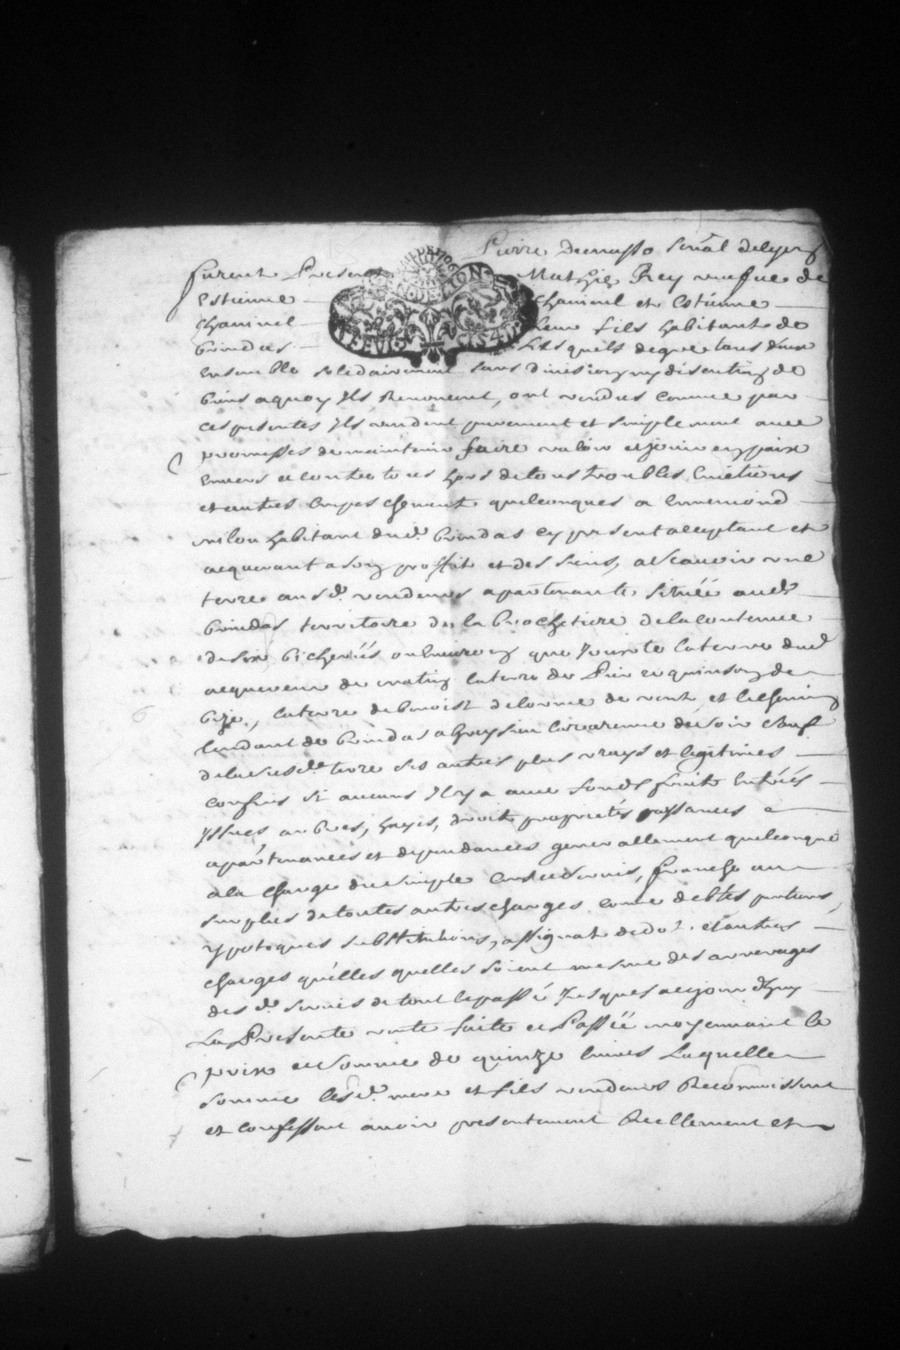 Pierre
furent Present Mathie Rey veufue de
Estienne Chaninel et Estienne
Chaninel leur fils habitants de
brindas Lesquels de gre tous deux
ensemble solidairement sans division ny discution de
biens a quoy Ils Renoncent, ont vendus comme par
ces presentes Ils vendent purement et simplement avec
promesses de maintenir faire valoir et jouir en paix
envers et contre tous hors de tous troubles Euictions
et autres Empeschement quelconques a Ennemond
milon habitant dud. brindas cy present acceptant et
acquerant a son proffit et des siens, a Scauoir vne
terre au sd. vendeurs apartenante Situéé aud.
brindas territoire de la brochetiere de la contenue
de six bicheréés ou Enuiron que Jouxte la terre dud
acquereur de matin la terre de Pierre quinson de
bize, la terre de benoist delorme de vent et le chemin
tendant de brindas a Grezieu la varenne de soir Sauf
de la susd. terre ses autres plus vrays et legitimes
confins si aucuns Il y a auec fonds fruits Entréés
yssues arbres, hayes, droits proprietés aysances
apartenances et dependances generallement quelconque
a la charge du simple Cens et seruis, franche au
surplus de toutes autres charges comme debtes pentions
ypoteques substitutions, assignat de dot. et autres
charges quelles quelles soient mesme des arrerages
des d. seruis de tout le passé Jusques a ce jourdhuy
La Presente vente faite et Passéé moyennant le
prix et Somme de quinze liures Laquelle
somme lesd. mere et fils vendeurs Reconnoissent
et confessent auoir presentement Reellement et